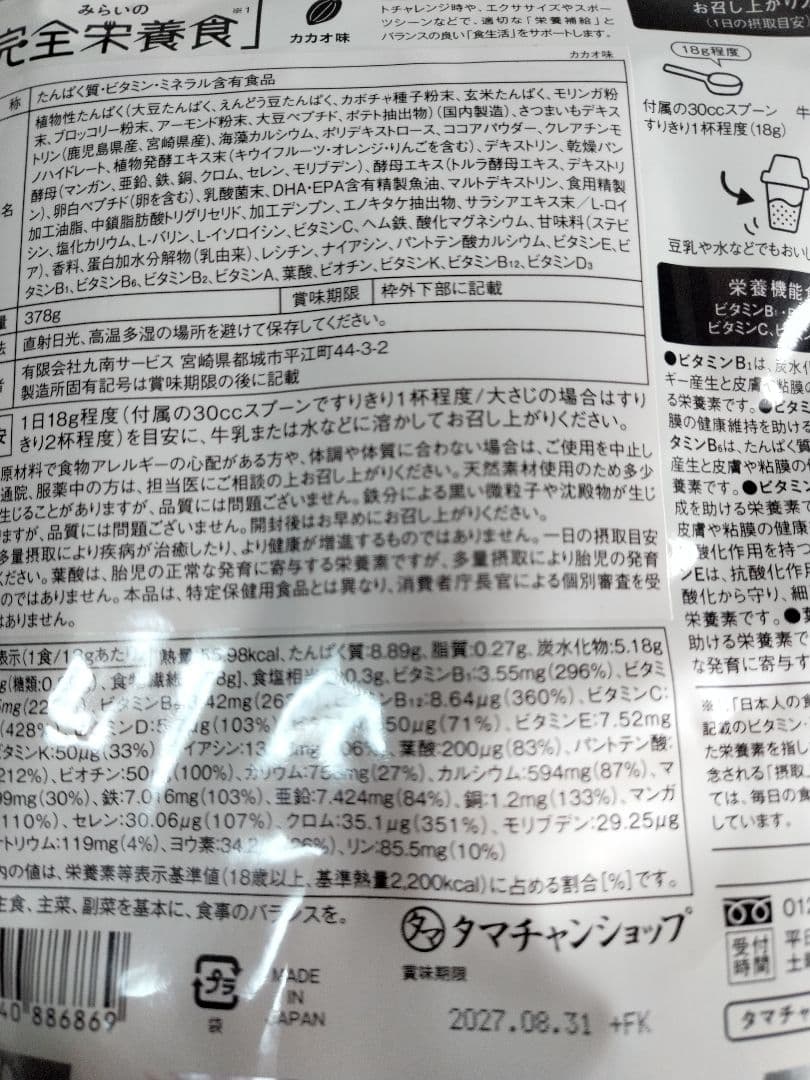 みらいの
完全栄養食」※1
カカオ味
トチャレンジ時や、エクササイズやスポー
ツシーンなどで、適切な「栄養補給」と
バランスの良い「食生活」をサポートします。
カカオ味
称 たんぱく質・ビタミン・ミネラル含有食品
植物性たんぱく(大豆たんぱく、えんどう豆たんぱく、カボチャ種子粉末、玄米たんぱく、モリンガ粉
末、ブロッコリー粉末、アーモンド粉末、大豆ペプチド、ポテト抽出物)(国内製造)、さつまいもデキス
トリン(鹿児島県産、宮崎県産)、海藻カルシウム、ポリデキストロース、ココアパウダー、クレアチンモ
ノハイドレート、植物発酵エキス末(キウイフルーツ・オレンジ・りんごを含む)、デキストリン、乾燥パン
名 酵母(マンガン、亜鉛、鉄、銅、クロム、セレン、モリブデン)、酵母エキス(トルラ酵母エキス、デキストリ
ン)、卵白ペプチド(卵を含む)、乳酸菌末、DHA・EPA含有精製魚油、マルトデキストリン、食用精製
加工油脂、中鎖脂肪酸トリグリセリド、加工デンプン、エノキタケ抽出物、サラシアエキス末/L-ロイ
シン、塩化カリウム、L-バリン、L-イソロイシン、ビタミンC、ヘム鉄、酸化マグネシウム、甘味料(ステビ
ア)、香料、蛋白加水分解物(乳由来)、レシチン、ナイアシン、パントテン酸カルシウム、ビタミンE、ビ
タミンB₁、ビタミンB₆、ビタミンB₂、ビタミンA、葉酸、ビオチン、ビタミンK、ビタミンB₁₂、ビタミンD₃
量 378g 賞味期限 枠外下部に記載
法 直射日光、高温多湿の場所を避けて保存してください。
者 有限会社九南サービス 宮崎県都城市平江町44-3-2
製造所固有記号は賞味期限の後に記載
安 1日18g程度(付属の30ccスプーンですりきり1杯程度/大さじの場合はすり
きり2杯程度)を目安に、牛乳または水などに溶かしてお召し上がりください。
原材料で食物アレルギーの心配がある方や、体調や体質に合わない場合は、ご使用を中止し
通院、服薬中の方は、担当医にご相談の上お召し上がりください。天然素材使用のため多少
生じることがありますが、品質には問題ございません。鉄分による黒い微粒子や沈殿物が生じ
ますが、品質には問題ございません。開封後はお早めにお召し上がりください。
多量摂取により疾病が治癒したり、より健康が増進するものではありません。一日の摂取目安
ください。葉酸は、胎児の正常な発育に寄与する栄養素ですが、多量摂取により胎児の発育
のではありません。本品は、特定保健用食品とは異なり、消費者庁長官による個別審査を受
はありません。
表示(1食/18gあたり) 熱量 .98kcal、たんぱく質:8.89g、脂質:0.27g、炭水化物:5.18g
g(糖類: 食物繊維 8g]、食塩相当 0.3g、ビタミンB₁:3.55mg(296%)、ビタミ
mg(22 ビタミンB 42mg(26 B₁₂:8.64μg(360%)、ビタミンC:
(428%) ミンD:5 μg(103%) 50μg(71%)、ビタミンE:7.52mg
ビタミンK:50μg(33%) イアシン:13 06%)、葉酸:200μg(83%)、パントテン酸:
212%)、ビオチン:50 (100%)、カリウム:75 mg(27%)、カルシウム:594mg(87%)、マ
99mg(30%)、鉄:7.016mg(103%)、亜鉛:7.424mg(84%)、銅:1.2mg(133%)、マンガ
110%)、セレン:30.06μg(107%)、クロム:35.1μg(351%)、モリブデン:29.25μg
トリウム:119mg(4%)、ヨウ素:34.2 26%)、リン:85.5mg(10%)
内の値は、栄養素等表示基準値(18歳以上、基準熱量2,200kcal)に占める割合[%]です。
主食、主菜、副菜を基本に、食事のバランスを。
タマ タマチャンショップ
賞味期限
2027.08.31 +FK
プラ
袋
MADE
IN
JAPAN
40 886869
お召し上がり方
(1日の摂取目安)
18g程度
付属の30ccスプーン 牛
すりきり1杯程度(18g)
豆乳や水などでもおいし
栄養機能食
ビタミンB₁・
ビタミンC、ビ
●ビタミンB₁は、炭水化
ギー産生と皮膚や粘膜の
る栄養素です。●ビタミ
膜の健康維持を助ける
タミンB₆は、たんぱく質
産生と皮膚や粘膜の
養素です。●ビタミン
成を助ける栄養素で
皮膚や粘膜の健康
酸化作用を持つ
ンEは、抗酸化作用
酸化から守り、細
栄養素です。●葉
助ける栄養素で
な発育に寄与す
※1「日本人の食
記載のビタミン・
た栄養素を指し
念される「摂取
ては、毎日の食
しています。
012
受付
時間
平日
土
タマチャ